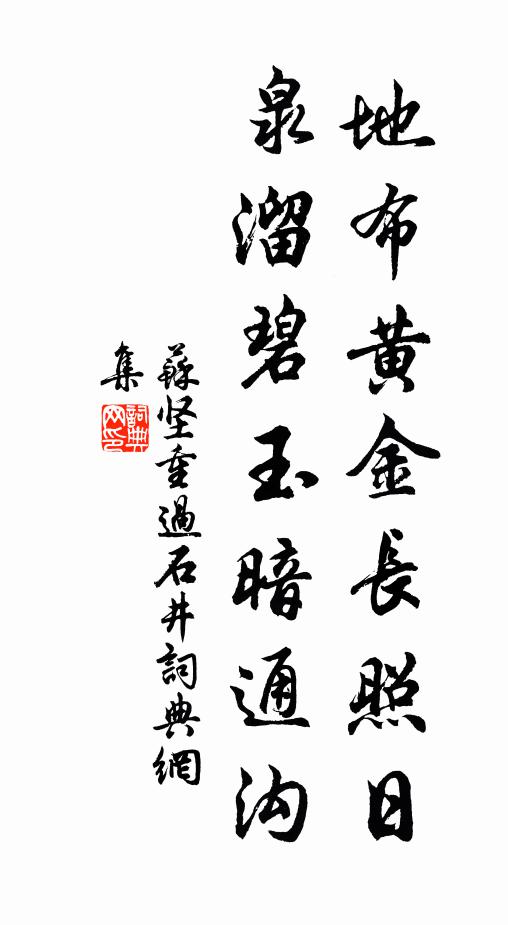 地布黃金長照日
泉溜碧玉暗通沟
蘇坚重過石井詞典網
集
詞典
网印